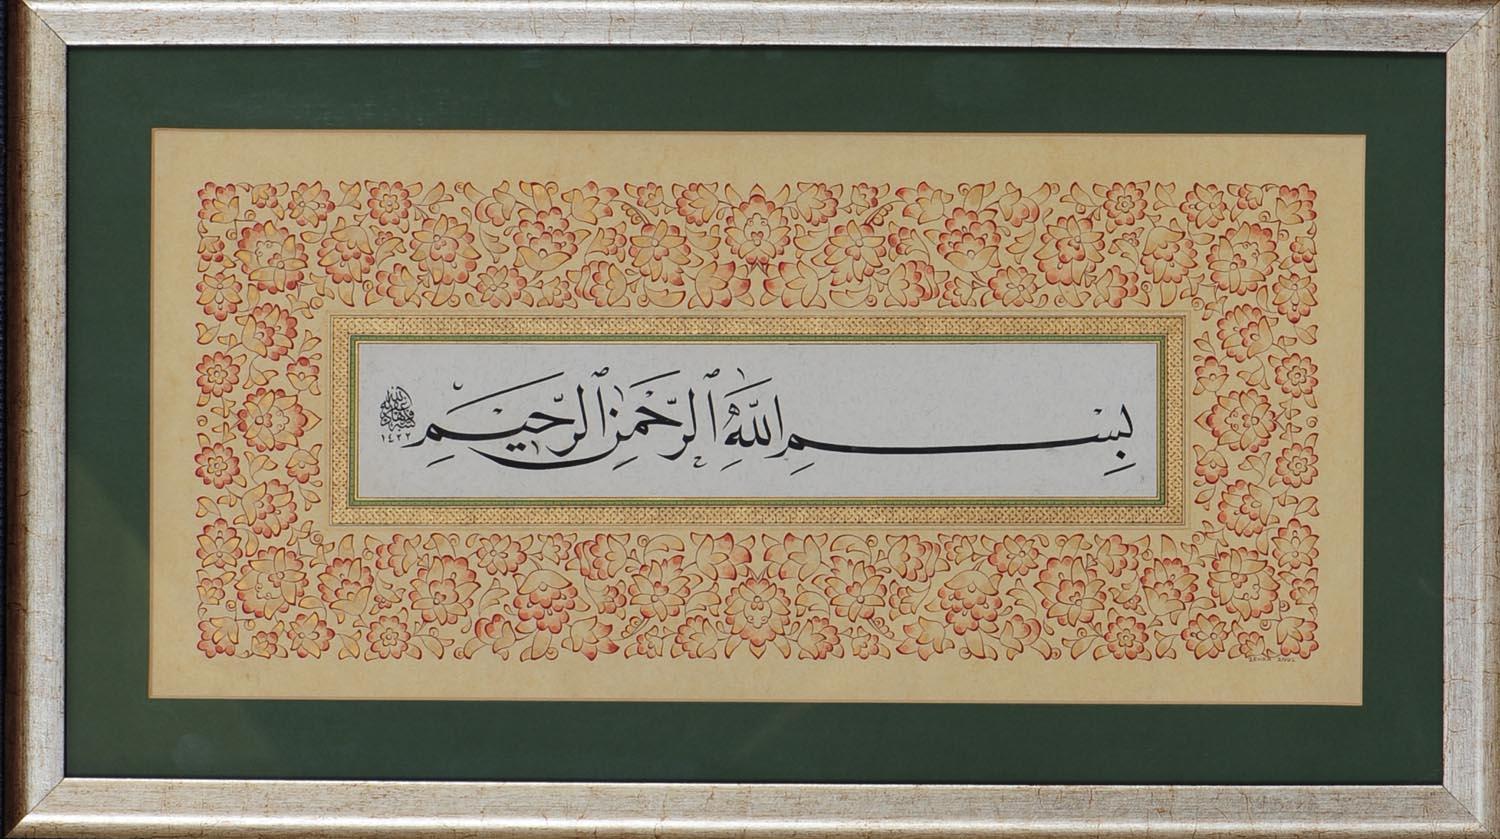 بِسْمِ اللَّهِ الرَّحْمَنِ الرَّحِيمِ
١٤٢٢